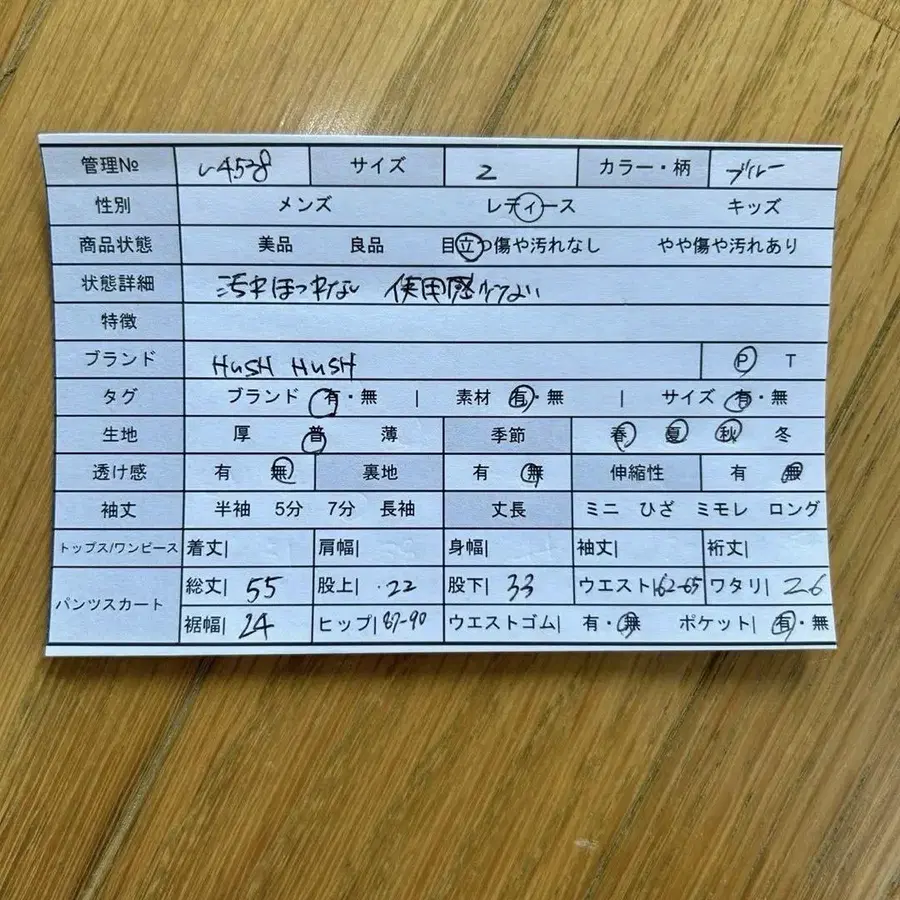 管理№ い4528 サイズ 2 カラー・柄 ブルー
性別 メンズ レディース キッズ
商品状態 美品 良品 目立つ傷や汚れなし やや傷や汚れあり
状態詳細 汚れほつれなし 使用感少ない
特徴
ブランド HuSH HuSH P T
タグ ブランド 有・無 | 素材 有・無 | サイズ 有・無
生地 厚 普 薄 季節 春 夏 秋 冬
透け感 有 無 裏地 有 無 伸縮性 有 無
袖丈 半袖 5分 7分 長袖 丈長 ミニ ひざ ミモレ ロング
トップス/ワンピース 着丈| 肩幅| 身幅| 袖丈| 裄丈|
パンツスカート 総丈| 55 股上| 22 股下| 33 ウエスト| 62-65 ワタリ| 26
裾幅| 24 ヒップ| 87-90 ウエストゴム| 有・無 ポケット| 有・無